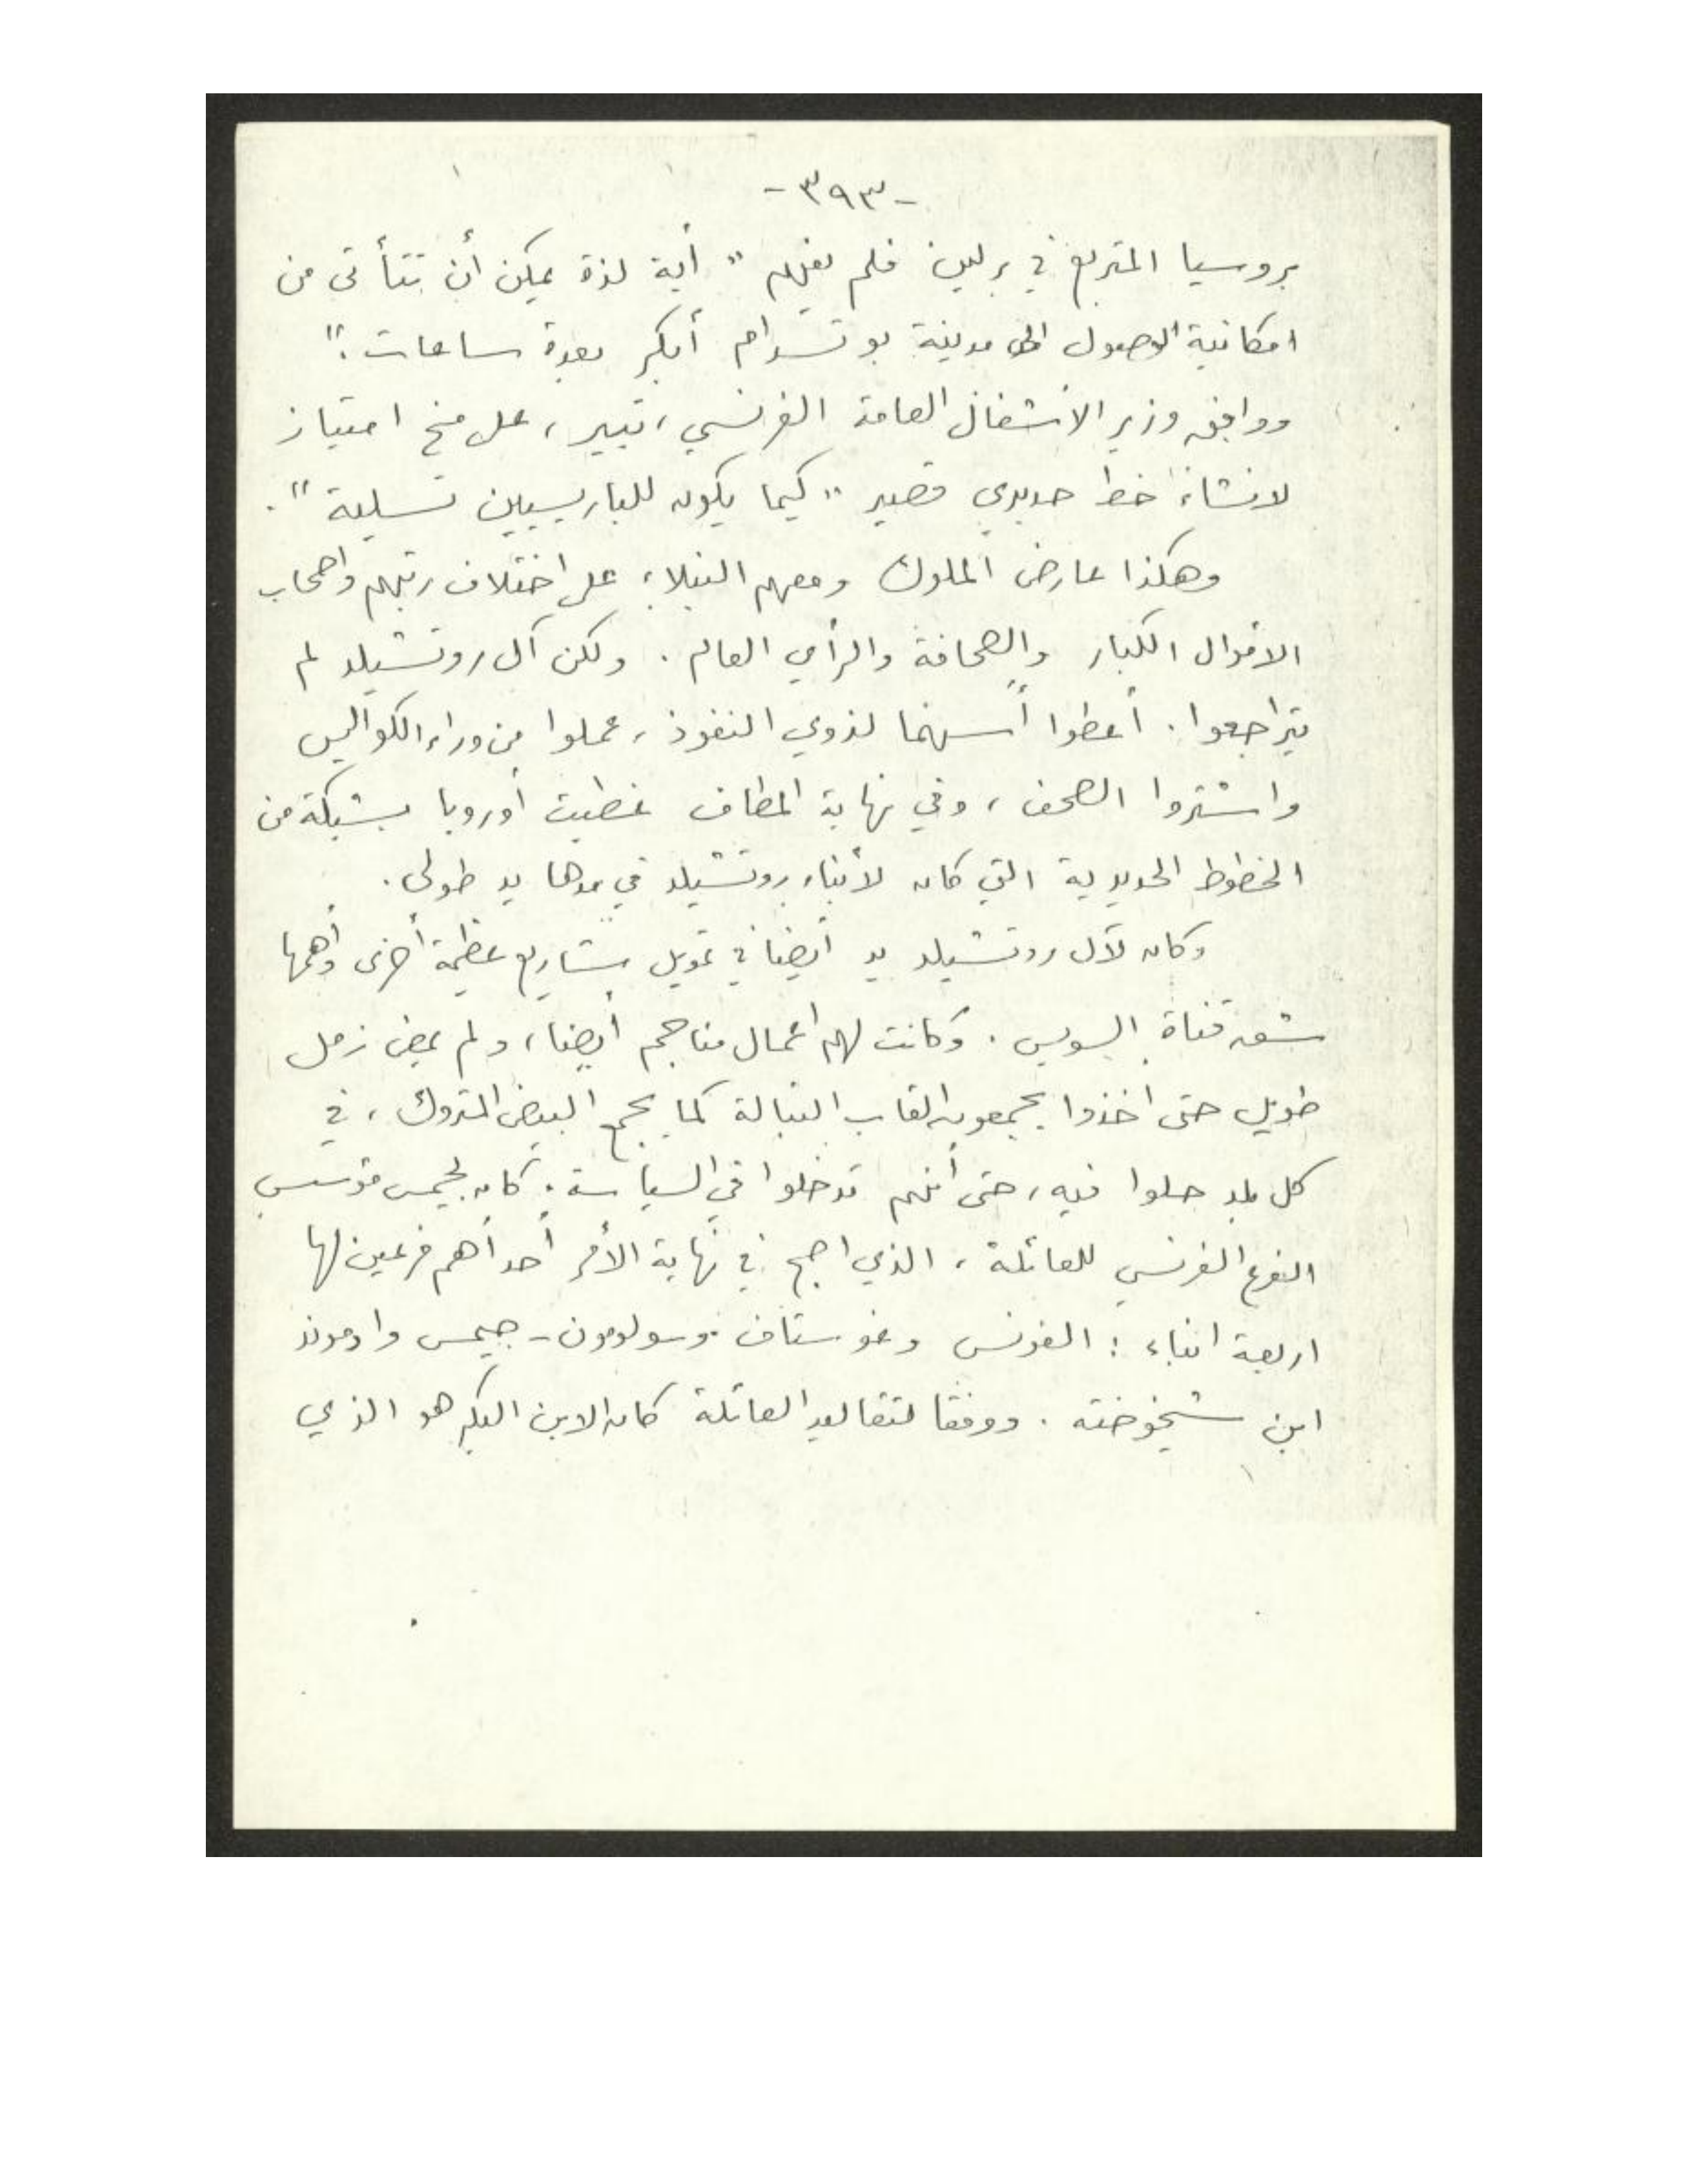 -٣٩٣-
بروسيا المتربع في برلين فلم يفهم " أية لذة يمكن أن تتأتى من
امكانية الوصول الى مدينة بوتسدام أبكر بعدة ساعات ."
ووافق وزير الأشغال العامة الفرنسي ، تيير ، على منح امتياز
لانشاء خط حديدي قصير " كيما يكون للباريسيين تسلية " .
وهكذا عارض الملوك ومعهم النبلاء على اختلاف رتبهم واصحاب
الاموال الكبار والصحافة والرأي العام . ولكن آل روتشيلد لم
يتراجعوا . أعطوا أسهما لذوي النفوذ ، عملوا من وراء الكواليس
واشتروا الصحف ، وفي نهاية المطاف غطيت أوروبا بشبكة من
الخطوط الحديدية التي كان لأبناء روتشيلد في مدها يد طولى .
وكان لآل روتشيلد يد أيضا في تمويل مشاريع عظيمة أخرى وأهمها
شق قناة السويس . وكانت لهم اعمال مناجم أيضا ، ولم يمض زمن
طويل حتى اخذوا يجمعون القاب النبالة كما يجمع البيض المتروك ، في
كل بلد حلوا فيه ، حتى أنهم تدخلوا في السياسة . كان لجيمس مؤسس
الفرع الفرنسي للعائلة ، الذي اصبح في نهاية الأمر أحد أهم فرعين لها
اربعة ابناء : الفونس وغوستاف وسولومون - جيمس وادموند
ابن شيخوخته . ووفقا لتقاليد العائلة كان الابن البكر هو الذي